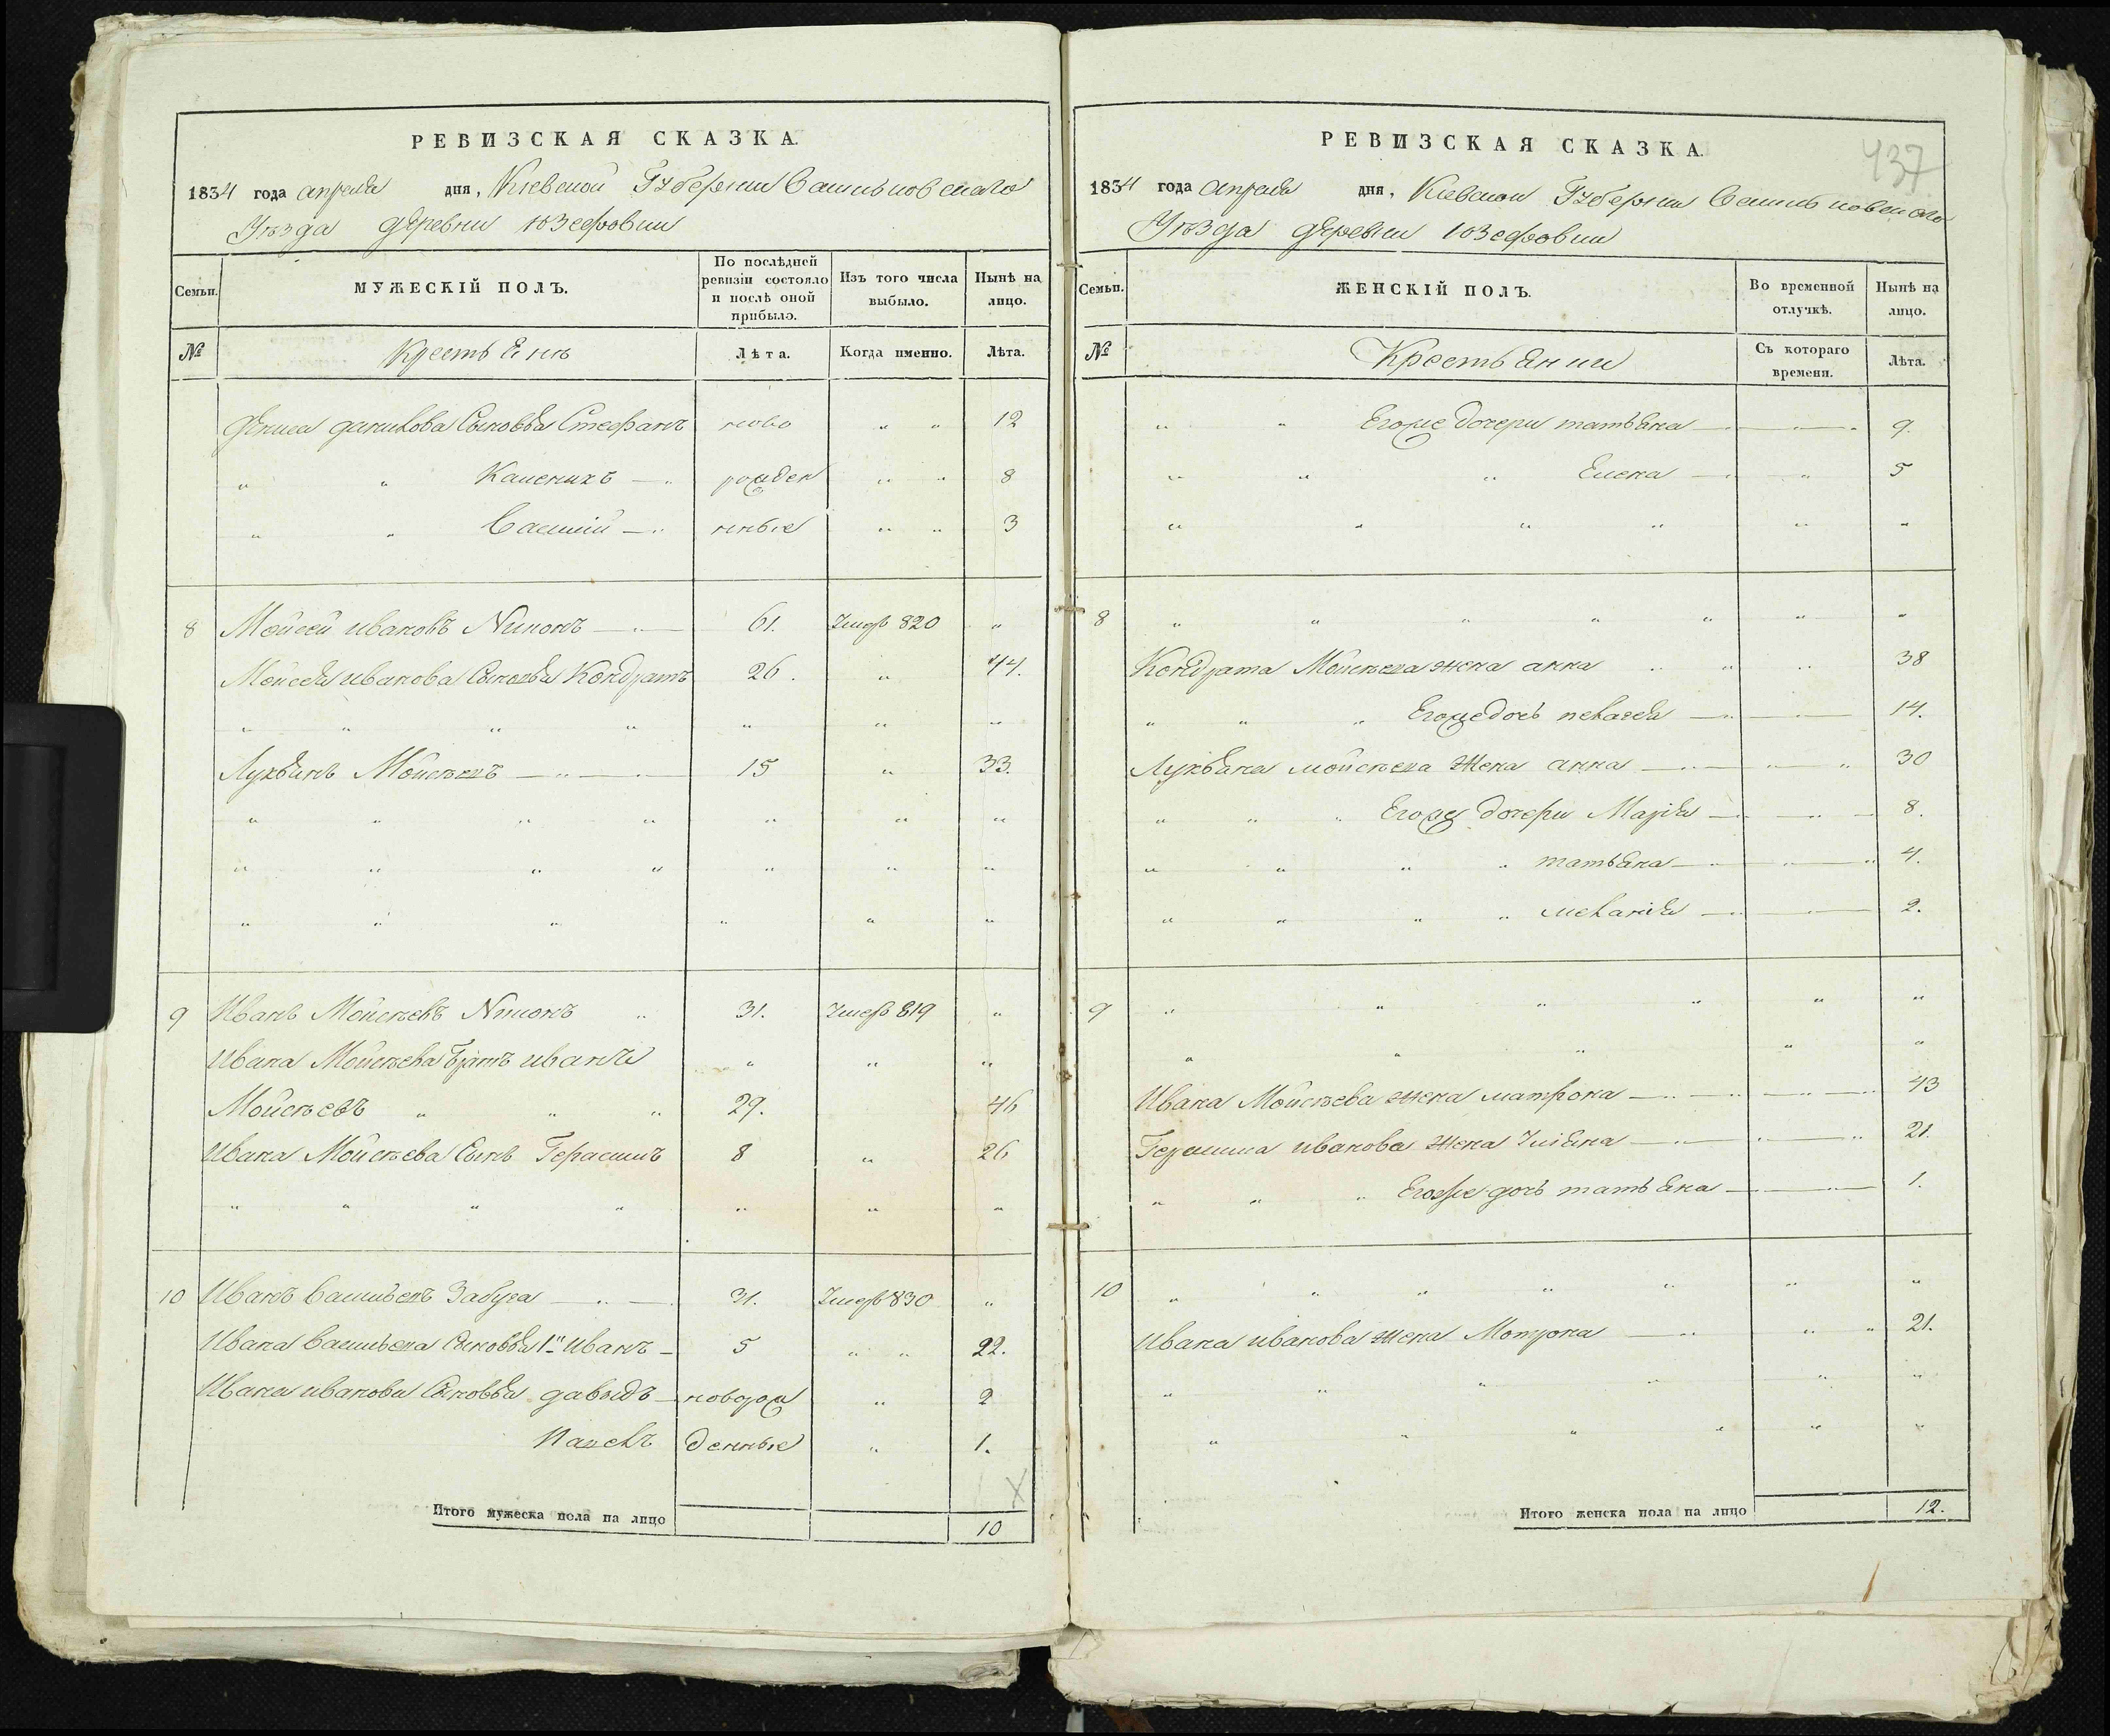 РЕВИЗСКАЯ СКАЗКА.
1834 года апреля дня, Киевской Губернии Васильковскаго
Уѣзда деревни Юзефовки
Семьи.
МУЖЕСКІЙ ПОЛЪ.
По послѣдней ревизіи состояло и послѣ оной прибыло.
Изъ того числа выбыло.
Нынѣ на лицо.
№
Крестьянъ
Лѣта.
Когда именно.
Лѣта.
Дениса данилова Сыновья Стефанъ ново " " 12
" " рожден " " 8
" " Василій нные " " 3
8 Мойсей ивановъ 61. Умеръ 820 "
Мойсея иванова Сыновья Кондратъ 26. " 44.
" " " " " " "
Лукьянъ Мойсѣевъ 15 " 33.
" " " " " " "
" " " " " " "
" " " " " "
9 Иванъ Мойсѣевъ " 31. Умеръ 819 "
Ивана Мойсѣева братъ иванъ " " "
Мойсѣевъ " " " 29. 46
Ивана Мойсѣева Сынъ Герасимъ 8 " 26
" " " " " " "
10 Иванъ Васильевъ Забуга 31. Умеръ 830 "
Ивана Васильева Сыновья 1й Иванъ 5 " " 22.
Ивана иванова Сыновья давыдъ новорож " 2
Павелъ денные " 1.
Итого мужеска пола на лицо 10
РЕВИЗСКАЯ СКАЗКА.
437
1834 года Апреля дня, Киевской Губернии Васильковскаго
Уѣзда деревни Юзефовки
Семьи.
ЖЕНСКІЙ ПОЛЪ.
Во временной отлучкѣ.
Нынѣ на лицо.
№
Крестьянки
Съ котораго времени.
Лѣта.
" " Егоже дочери татьяна " 9.
" " " Елена " 5
" " " " " "
8 " " " " " " "
Кондрата Мойсѣева жена анна " " " 38
" " " Егоже дочь пелагея " 14.
Лукьяна мойсѣева жена анна " " 30
" " " Егоже дочери Марія " 8.
" " " " татьяна " " 4.
" " " " меланія " 2.
9 " " " " " "
" " " " "
Ивана Мойсѣева жена матрона " " 43
Герасима иванова жена Уліяна " " 21.
" " " Егоже дочь татьяна " 1.
10 " " " " " " "
Ивана иванова жена Мотрона " " 21.
" " " " " "
" " " " " "
Итого женска пола на лицо 12.